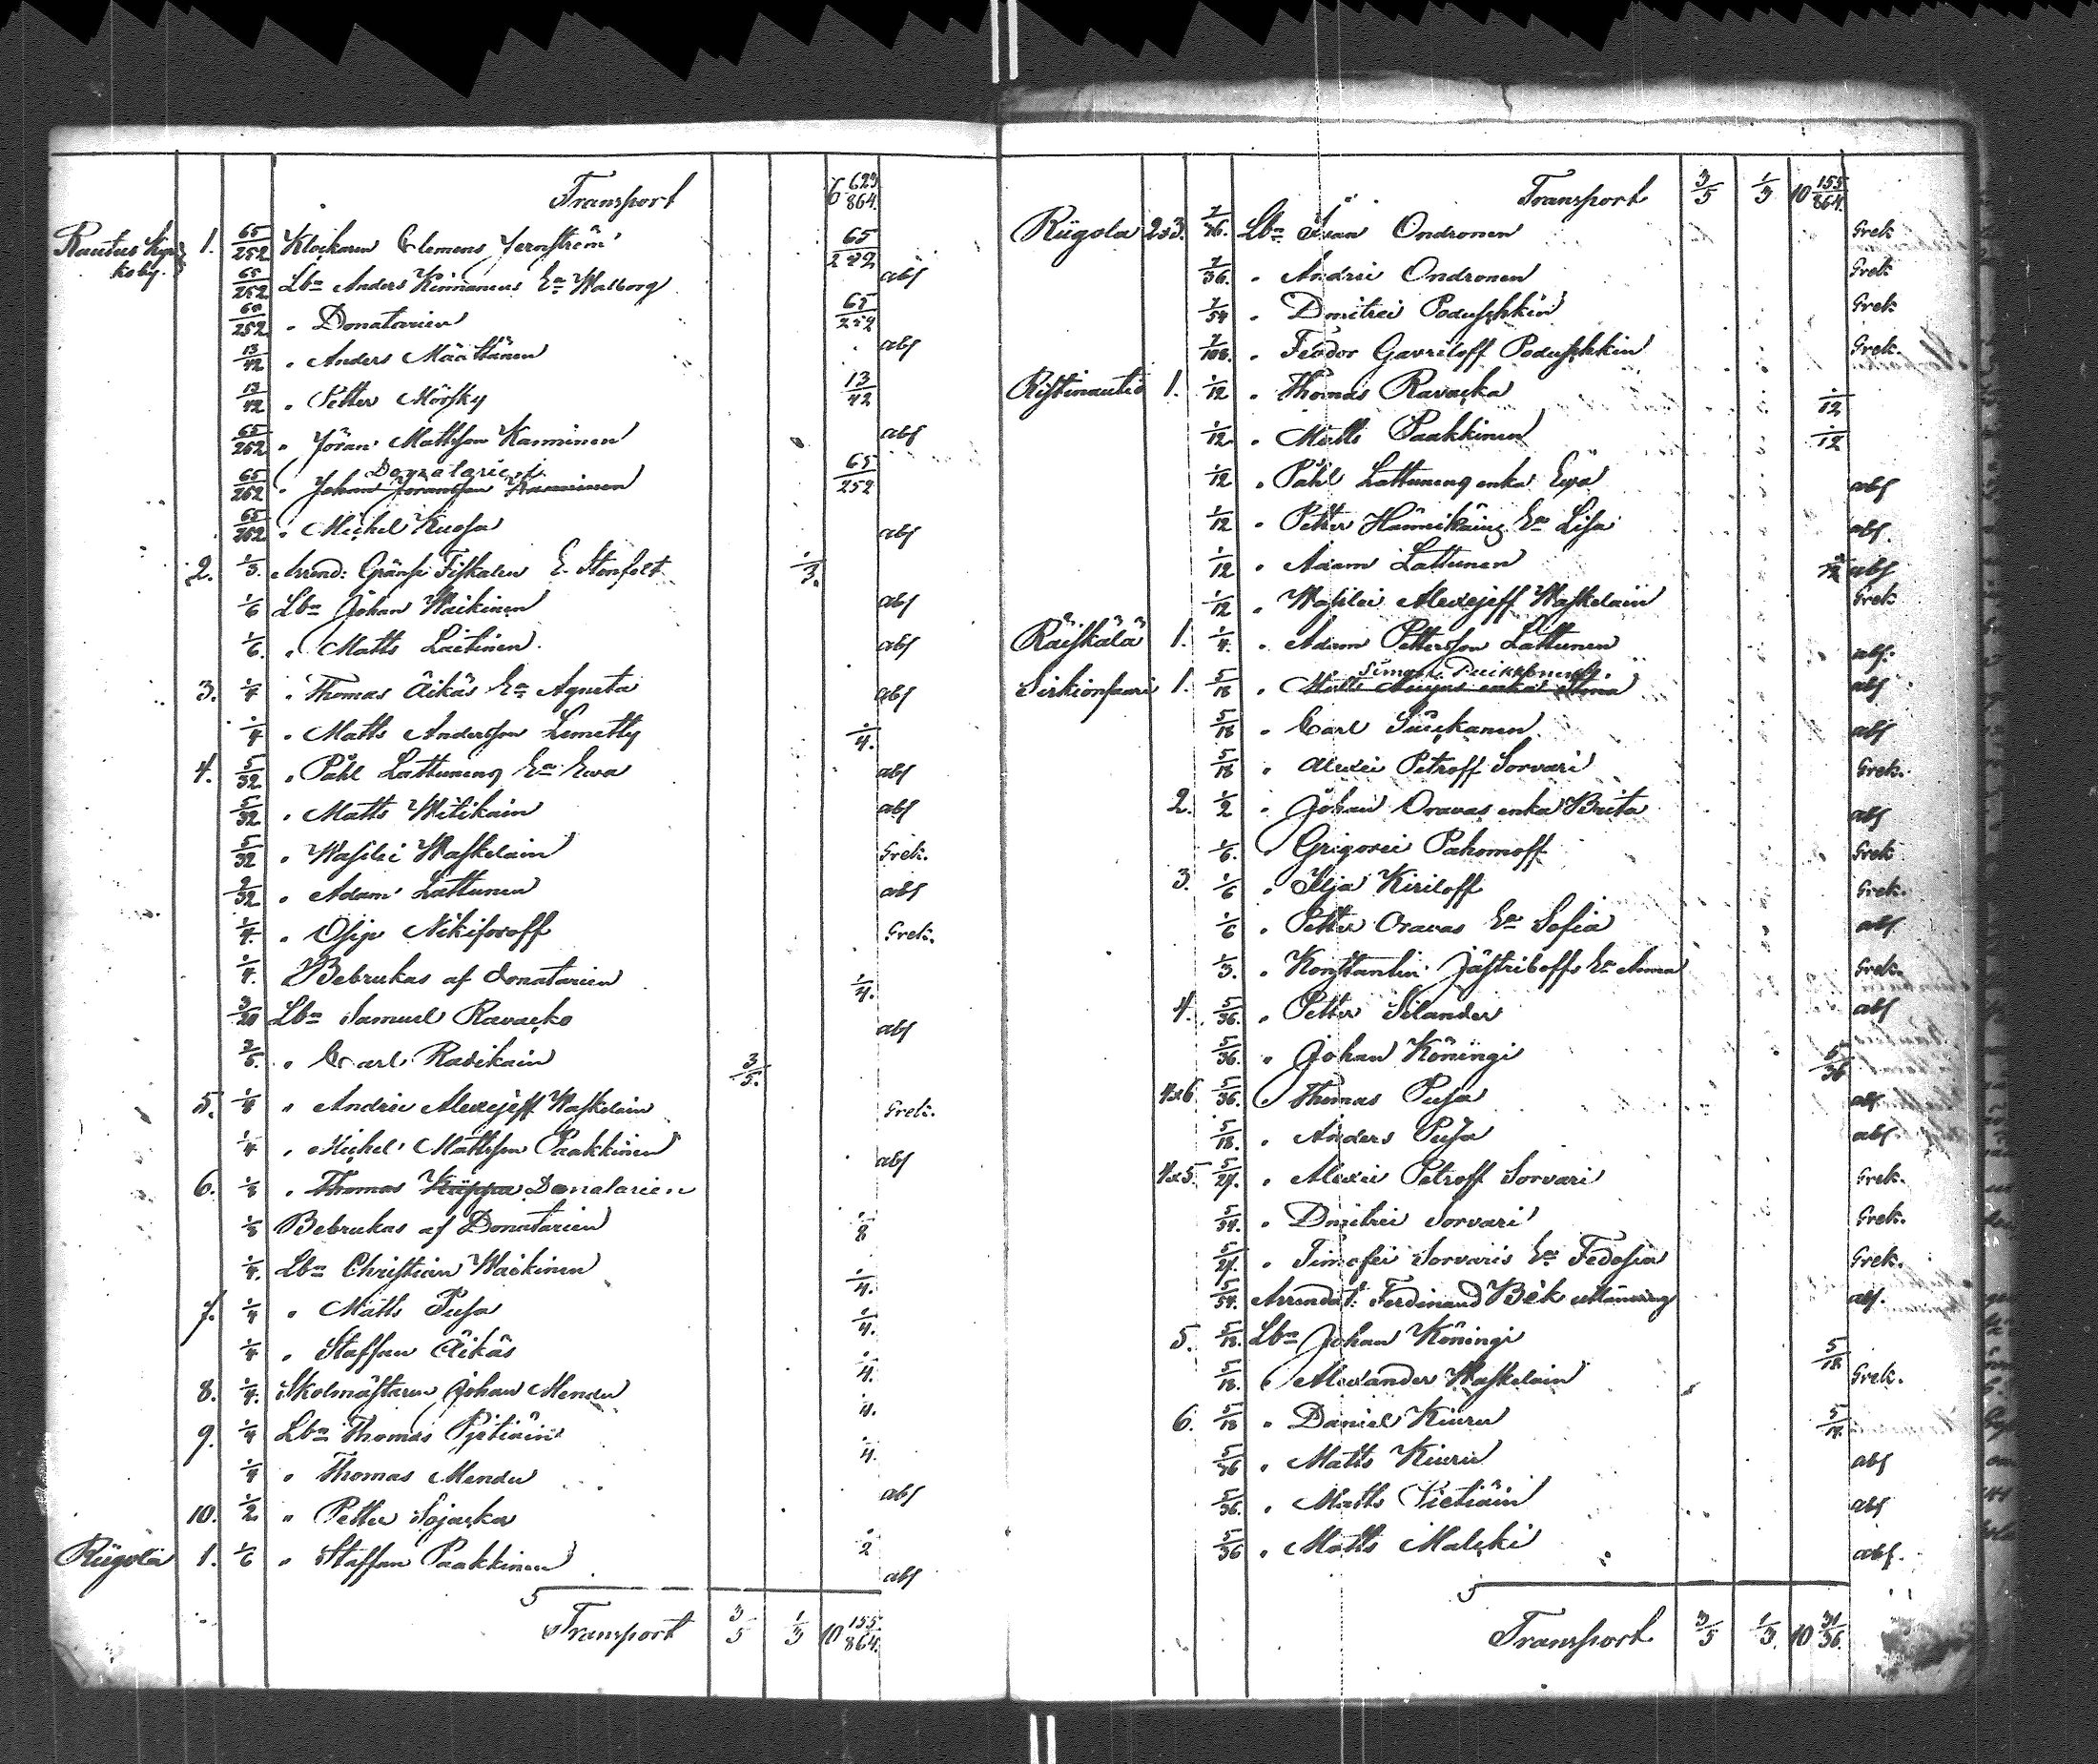 Transport 6 623/864.
Rautus Kyrkoby. 1. 65/252 Klockaren Clemens Jernström 65/252
65/252 Lbn Anders Kinnanens Ea Walborg abs
65/252 " Donatarien 65/252
13/42 " Anders Määttänen abs
13/42 " Petter Mörsky 13/42
65/252 " Jöran Mattsson Kanninen abs
65/252 " Johan Göransson Kanninen Donatarien 65/252
65/252 " Michel Kuosa abs
2. 1/3. Arrend: Gräns Fiskalen E. Stenfelt 1/3.
1/6 Lbn Johan Waikinen abs
1/6. " Matts Laitinen abs
3. 1/4 " Thomas Äikäs Ea Agneta abs
1/4 " Matts Andersson Lemetty 1/4.
4. 5/32 " Påhl Lattunens Ea Ewa abs
5/32 " Matts Witikain abs
5/32 " Wasilei Waskelain Grek.
9/32 " Adam Lattunen abs
1/4. " Osip Nikiforoff Grek.
1/4. Bebrukas af Donatarien 1/4.
3/20 Lbn Samuel Ravaska abs
3/5. " Carl Radikain 3/5.
5. 1/8 " Andrei Alexejeff Waskelain Grek.
1/4 " Michel Mattsson Paakkinen abs
6. 1/8 " Thomas Käppa Donatarien
1/8 Bebrukas af Donatarien 1/8
1/4. Lbn Christian Waikinen 1/4.
7. 1/4 " Matts Pusa 1/4.
1/4 " Staffan Äikäs 1/4.
8. 1/4. Skolmästaren Johan Mendu 1/4.
9. 1/4 Lbn Thomas Pjetiäin 1/4.
1/4 " Thomas Mendu abs
10. 1/2 " Petter Sojaska 1/2
Riigola 1. 1/6 " Staffan Paakkinen abs
Transport 3/5 1/3 10 155/864.
Transport 3/5 1/3 10 155/864.
Riigola 2&3. 7/36. Lbn Iwan Ondronen Grek
7/36. " Andrei Ondronen Grek
7/54 " Dmitrei Poduschkin Grek
7/108. " Feodor Gavriloff Poduschkin Grek.
Ristinautio 1. 1/12 " Thomas Ravaska 1/12
1/12 " Matts Paakkinen 1/12
1/12 " Påhl Lattunens enka Ewa abs
1/12 " Petter Hännikäins Ea Lisa abs.
1/12 " Adam Lattunen abs
1/12 " Wasilei Alexejeff Waskelain Grek
Räiskälä 1. 1/4. " Adam Pettersson Lattunen abs.
Sirkiönsaari 1. 5/18 " Simon abs
5/18 " Carl abs
5/18 " Alexei Petroff Sorvari Grek.
2. 1/2 " Johan Oravas enka Brita abs
1/6. " Grigorei Pahomoff Grek
3. 1/6 " Ilja Kiriloff Grek.
1/6 " Petter Oravas Ea Sofia abs
1/3. " Konstantin Jästriboffs Ea Anna Grek.
4. 5/36. " Petter Silander abs
5/36. " Johan Köningi 5/36
4&6 5/36. " Thomas Pusa abs
5/18. " Anders Pusa abs.
4&5. 5/27. " Alexei Petroff Sorvari Grek.
5/54. " Dmitrei Sorvari Grek.
5/27. " Timofei Sorvaris Ea Fedosia Grek.
5/54. Arrendat: Ferdinand Bèk abs.
5. 5/18. Lbn Johan Köningi 5/18
5/18. " Alexander Waskelain Grek.
6. 5/18 " Daniel Kiuru 5/18.
5/36 " Matts Kiuru abs
5/36. " Matts Pietiäin abs
5/36 " Matts Malski abs.
Transport 3/5 1/3. 10 31/36.